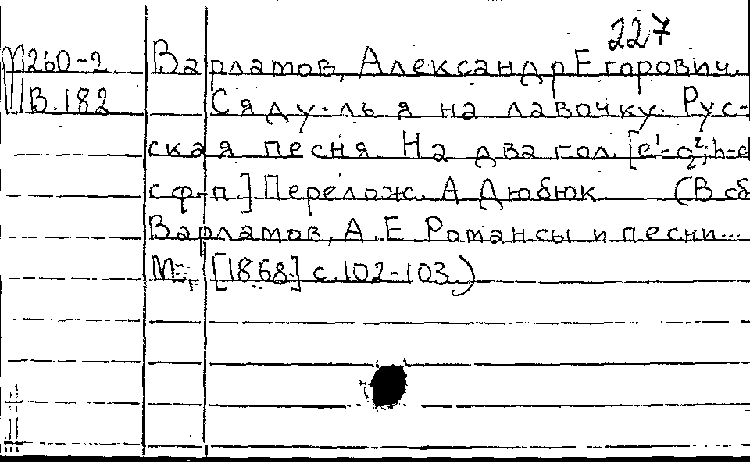 227
М260-2 Варламов, Александр Егорович.
В.182 Сяду-ль я на лавочку. Рус-
ская песня. На два гол. [e¹-g²; h-e
с ф-п.] Перелож. А. Дюбюк (В сб
Варламов, А.Е. Романсы и песни...
М., [1868] с.102-103.)